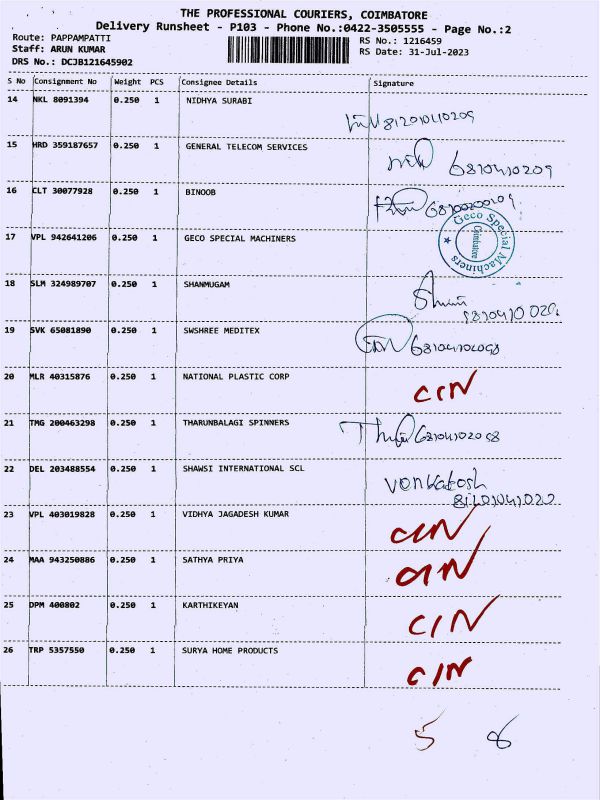 THE PROFESSIONAL COURIERS, COIMBATORE
Delivery Runsheet - P103 - Phone No.:0422-3505555 - Page No.:2
Route: PAPPAMPATTI
RS No.: 1216459
Staff: ARUN KUMAR
RS Date: 31-Jul-2023
DRS No.: DCJB121645902
S No Consignment No Weight PCS Consignee Details Signature
14 NKL 8091394 0.250 1 NIDHYA SURABI
15 HRD 359187657 0.250 1 GENERAL TELECOM SERVICES 6810410209
16 CLT 30077928 0.250 1 BINOOB
17 VPL 942641206 0.250 1 GECO SPECIAL MACHINERS
Geco Special Machiners
Coimbatore
18 SLM 324989707 0.250 1 SHANMUGAM
19 SVK 65081890 0.250 1 SWSHREE MEDITEX
20 MLR 40315876 0.250 1 NATIONAL PLASTIC CORP CIN
21 TMG 200463298 0.250 1 THARUNBALAGI SPINNERS
22 DEL 203488554 0.250 1 SHAWSI INTERNATIONAL SCL Venkatesh
23 VPL 403019828 0.250 1 VIDHYA JAGADESH KUMAR CIN
24 MAA 943250886 0.250 1 SATHYA PRIYA CIN
25 DPM 400802 0.250 1 KARTHIKEYAN CIN
26 TRP 5357550 0.250 1 SURYA HOME PRODUCTS CIN
5 8